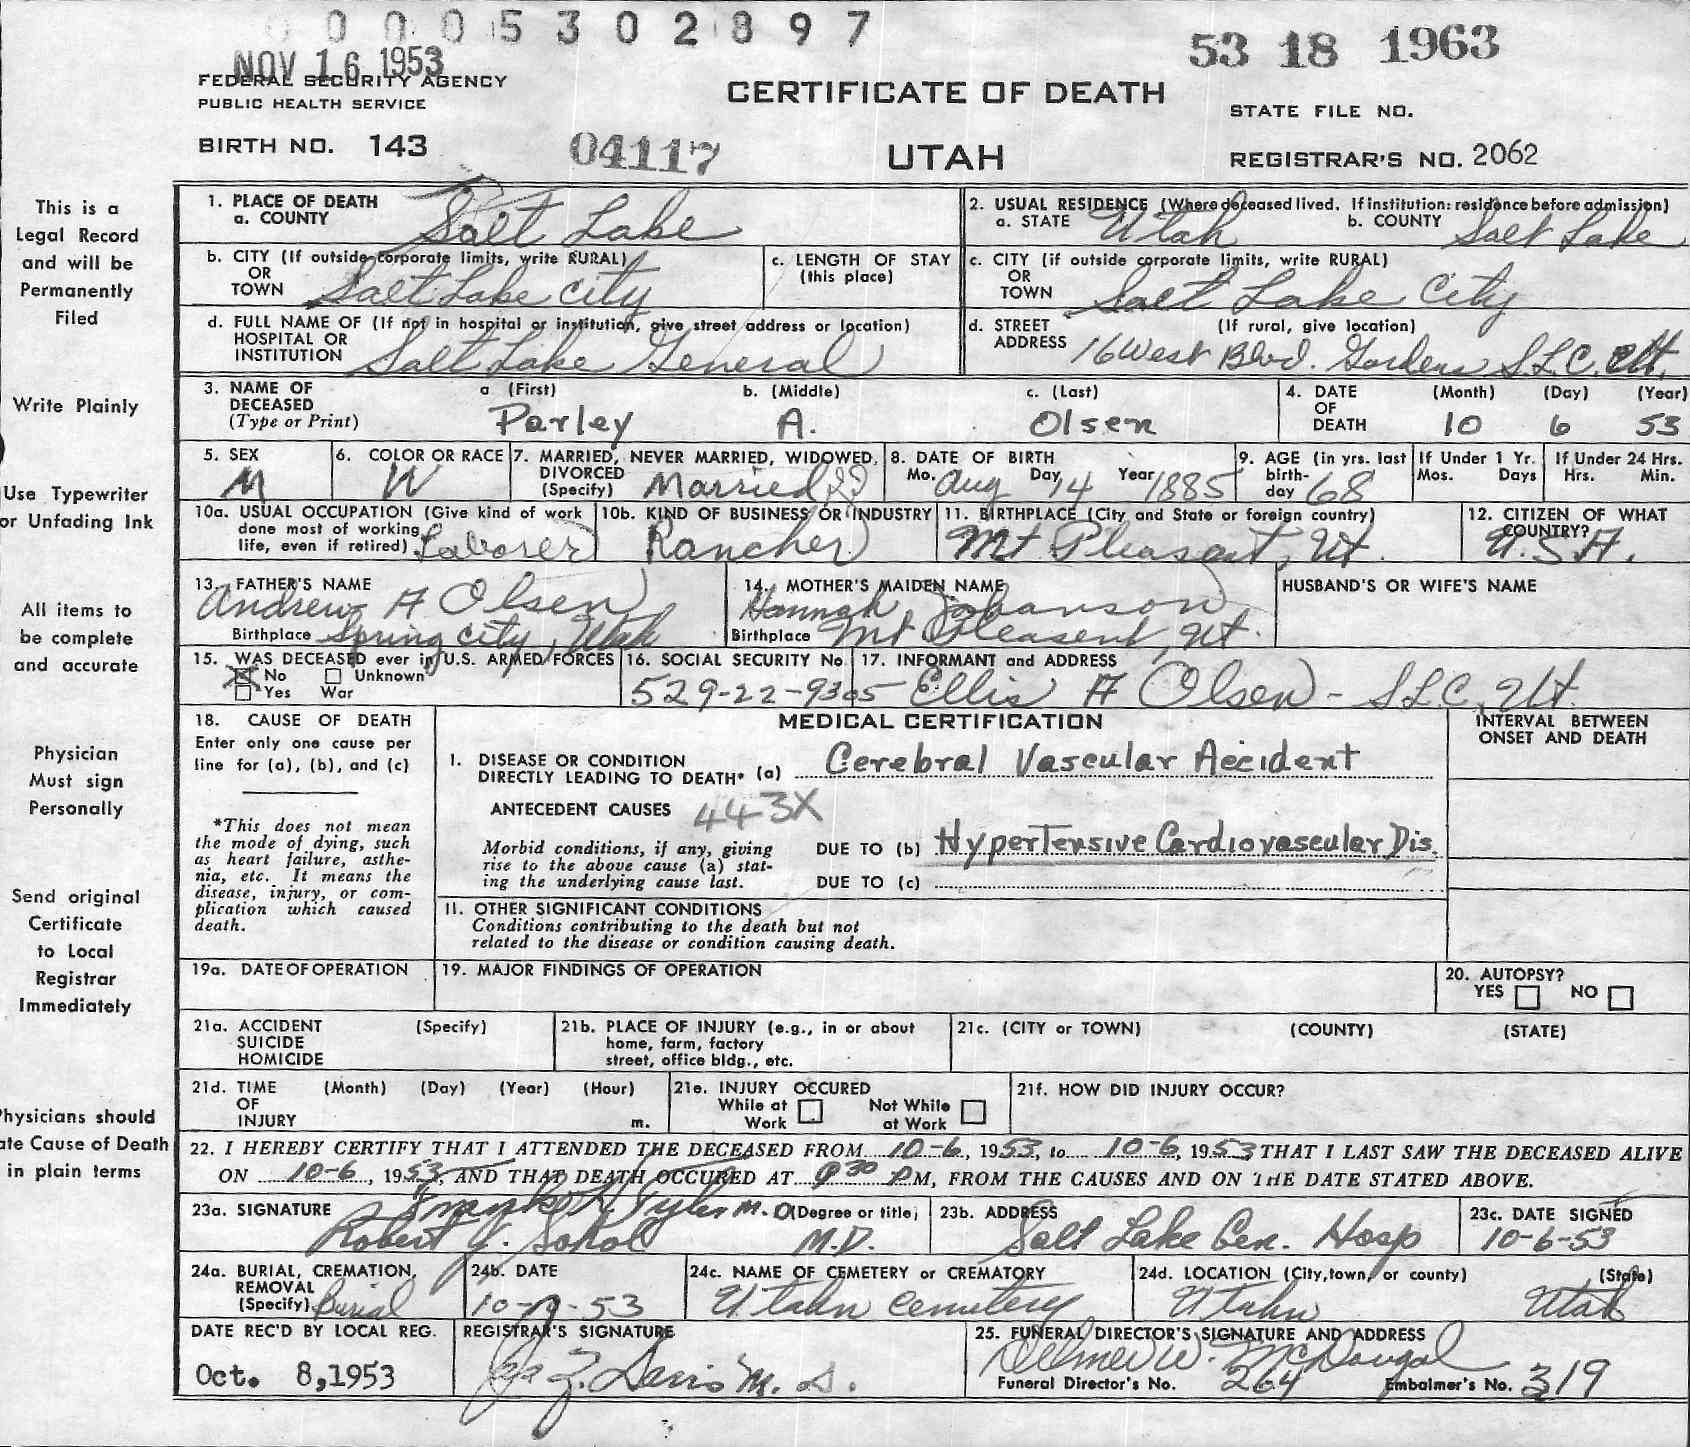 0 0 0 0 5 3 0 2 8 9 7
NOV 16 1953
53 18 1963
FEDERAL SECURITY AGENCY
PUBLIC HEALTH SERVICE
CERTIFICATE OF DEATH
STATE FILE NO.
BIRTH NO. 143 04117 UTAH REGISTRAR'S NO. 2062
This is a
Legal Record
and will be
Permanently
Filed
Write Plainly
Use Typewriter
or Unfading Ink
All items to
be complete
and accurate
Physician
Must sign
Personally
Send original
Certificate
to Local
Registrar
Immediately
Physicians should
ate Cause of Death
in plain terms
1. PLACE OF DEATH
a. COUNTY Salt Lake
2. USUAL RESIDENCE (Where deceased lived. If institution: residence before admission)
a. STATE Utah b. COUNTY Salt Lake
b. CITY (If outside corporate limits, write RURAL)
OR
TOWN Salt Lake City
c. LENGTH OF STAY
(this place)
c. CITY (if outside corporate limits, write RURAL)
OR
TOWN Salt Lake City
d. FULL NAME OF (If not in hospital or institution, give street address or location)
HOSPITAL OR
INSTITUTION Salt Lake General
d. STREET (If rural, give location)
ADDRESS 16 West Blvd. Gardens S.L.C. Ut.
3. NAME OF DECEASED
(Type or Print)
a (First) b. (Middle) c. (Last)
Parley A. Olsen
4. DATE OF DEATH (Month) (Day) (Year)
10 6 53
5. SEX
M
6. COLOR OR RACE
W
7. MARRIED, NEVER MARRIED, WIDOWED,
DIVORCED
(Specify) Married
8. DATE OF BIRTH
Mo. Aug Day 14 Year 1885
9. AGE (in yrs. last
birth-
day 68
If Under 1 Yr.
Mos. Days
If Under 24 Hrs.
Hrs. Min.
10a. USUAL OCCUPATION (Give kind of work
done most of working
life, even if retired) Laborer
10b. KIND OF BUSINESS OR INDUSTRY
Rancher
11. BIRTHPLACE (City and State or foreign country)
Mt Pleasant, Ut.
12. CITIZEN OF WHAT
COUNTRY?
U.S.A.
13. FATHER'S NAME
Andrew A Olsen
Birthplace Spring City, Utah
14. MOTHER'S MAIDEN NAME
Hannah Johanson
Birthplace Mt Pleasent, Ut.
HUSBAND'S OR WIFE'S NAME
15. WAS DECEASED ever in U.S. ARMED FORCES
No Unknown
Yes War
16. SOCIAL SECURITY No.
529-22-9305
17. INFORMANT and ADDRESS
Ellis A Olsen - SLC, Ut.
18. CAUSE OF DEATH
Enter only one cause per
line for (a), (b), and (c)
*This does not mean
the mode of dying, such
as heart failure, asthe-
nia, etc. It means the
disease, injury, or com-
plication which caused
death.
MEDICAL CERTIFICATION
INTERVAL BETWEEN
ONSET AND DEATH
I. DISEASE OR CONDITION
DIRECTLY LEADING TO DEATH* (a) Cerebral Vascular Accident
ANTECEDENT CAUSES 443X
Morbid conditions, if any, giving
rise to the above cause (a) stat-
ing the underlying cause last.
DUE TO (b) Hypertensive Cardiovascular Dis.
DUE TO (c)
11. OTHER SIGNIFICANT CONDITIONS
Conditions contributing to the death but not
related to the disease or condition causing death.
19a. DATE OF OPERATION
19. MAJOR FINDINGS OF OPERATION
20. AUTOPSY?
YES NO
21a. ACCIDENT (Specify)
SUICIDE
HOMICIDE
21b. PLACE OF INJURY (e.g., in or about
home, farm, factory
street, office bldg., etc.
21c. (CITY or TOWN) (COUNTY) (STATE)
21d. TIME (Month) (Day) (Year) (Hour)
OF
INJURY m.
21e. INJURY OCCURED
While at Work Not While at Work
21f. HOW DID INJURY OCCUR?
22. I HEREBY CERTIFY THAT I ATTENDED THE DECEASED FROM 10-6, 1953, to 10-6, 1953 THAT I LAST SAW THE DECEASED ALIVE
ON 10-6, 1953, AND THAT DEATH OCCURED AT 30 PM, FROM THE CAUSES AND ON THE DATE STATED ABOVE.
23a. SIGNATURE Frank H Tyler M.D. (Degree or title)
Robert Y. Sokol M.D.
23b. ADDRESS
Salt Lake Gen. Hosp
23c. DATE SIGNED
10-6-53
24a. BURIAL, CREMATION,
REMOVAL
(Specify) Burial
24b. DATE
10- -53
24c. NAME OF CEMETERY or CREMATORY
Utahn Cemetery
24d. LOCATION (City, town, or county) (State)
Utahn Utah
DATE REC'D BY LOCAL REG.
Oct. 8,1953
REGISTRAR'S SIGNATURE
Davis M.D.
25. FUNERAL DIRECTOR'S SIGNATURE AND ADDRESS
Delmer W. McDougal
Funeral Director's No. 264 Embalmer's No. 319